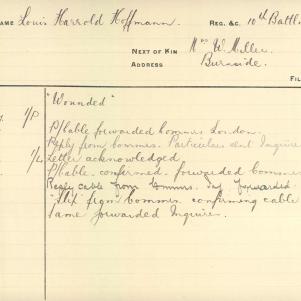 NAME Louis Harrold Hoffmann REG. &c. 10th Battl.
NEXT OF KIN Mrs W. Miller
ADDRESS Burnside.
FIL
1/P "Wounded"
P/Cable forwarded Commrs London.
Reply from Commrs. Particulars sent Inquirer
1/L Letter acknowledged
P/Cable. confirmed. forwarded Commrs
Reply cable from Commrs. forwarded.
from Commrs. confirming cable
Same forwarded Inquirer.